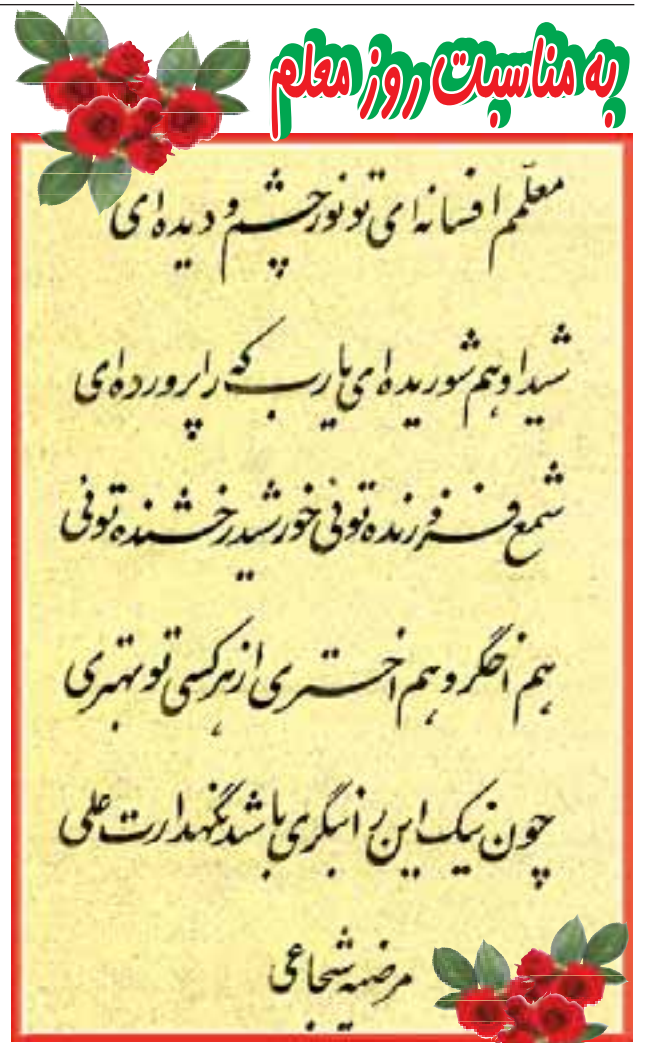 به مناسبت روز معلم
معلّمم افسانه ای تو نور چشم و دیده ای
شیدا و هم شوریده ای یارب که را پرورده ای
شمع فروزنده توئی خورشید رخشنده توئی
هم اخگر و هم اختری از هر کسی تو بهتری
چون نیک این را بنگری باشد نگهدارت علی
مرضیه شجاعی